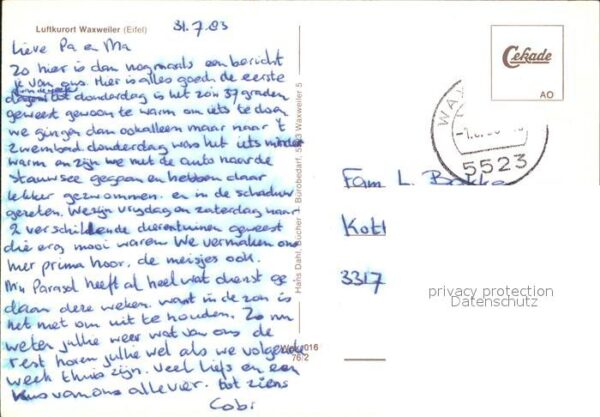 Luftkurort Waxweiler (Eifel)
31.7.83
Lieve Pa en Ma
Zo hier is dan nogmaals een bericht
van ons. Hier is alles goed de eerste
dagen tot donderdag is het zo'n 37 graden
geweest gewoon te warm om iets te doen
we gingen dan ook alleen maar naar 't
zwembad. donderdag was het iets minder
warm en zijn we met de auto naar de
stausee gegaan en hebben daar
lekker gezwommen. en in de schaduw
gezeten. We zijn vrijdag en zaterdag naar
2 verschillende dierentuinen geweest
die erg mooi waren. We vermaken ons
hier prima hoor. de meisjes ook.
M'n Parasol heeft al heel wat dienst ge
daan deze weken. want in de zon is
het niet om uit te houden. Zo nu
weten jullie weer wat van ons de
rest horen jullie wel als we volgende
week thuis zijn. Veel liefs en een
kus van ons alle vier. tot ziens
Cobi
Hans Dahl, Bücher u. Bürobedarf, 5523 Waxweiler 5
Cekade
AO
5523
Fam L.
3317
privacy protection
Datenschutz